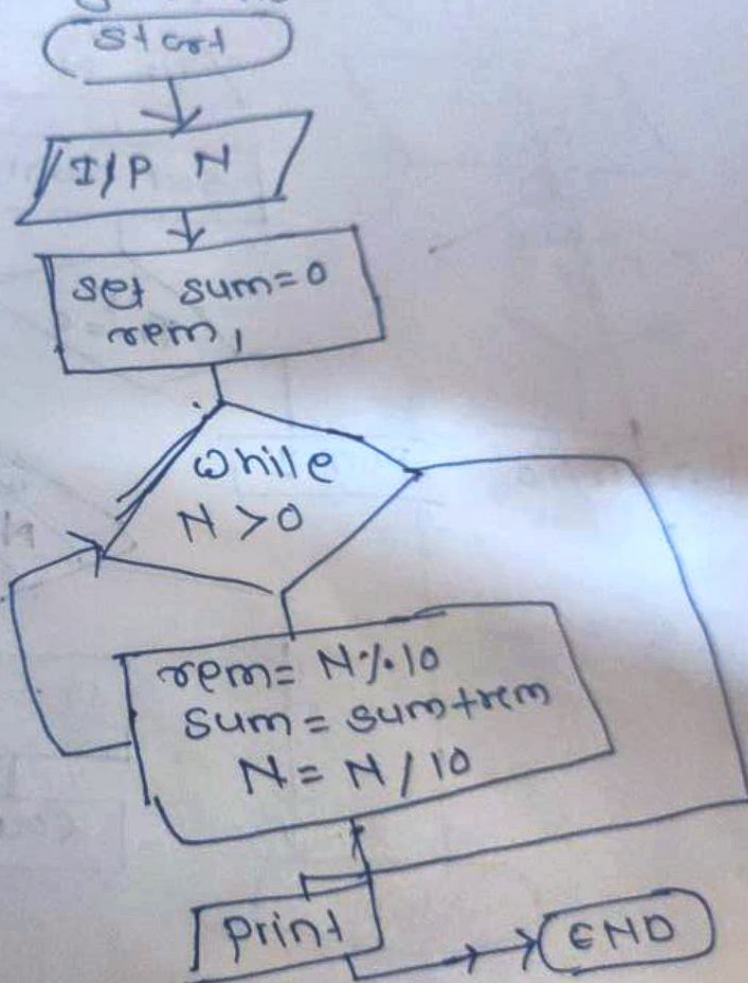 Start
I/P N
set sum=0
rem,
while
N>0
rem= N%10
sum = sum+rem
N = N/10
Print
END